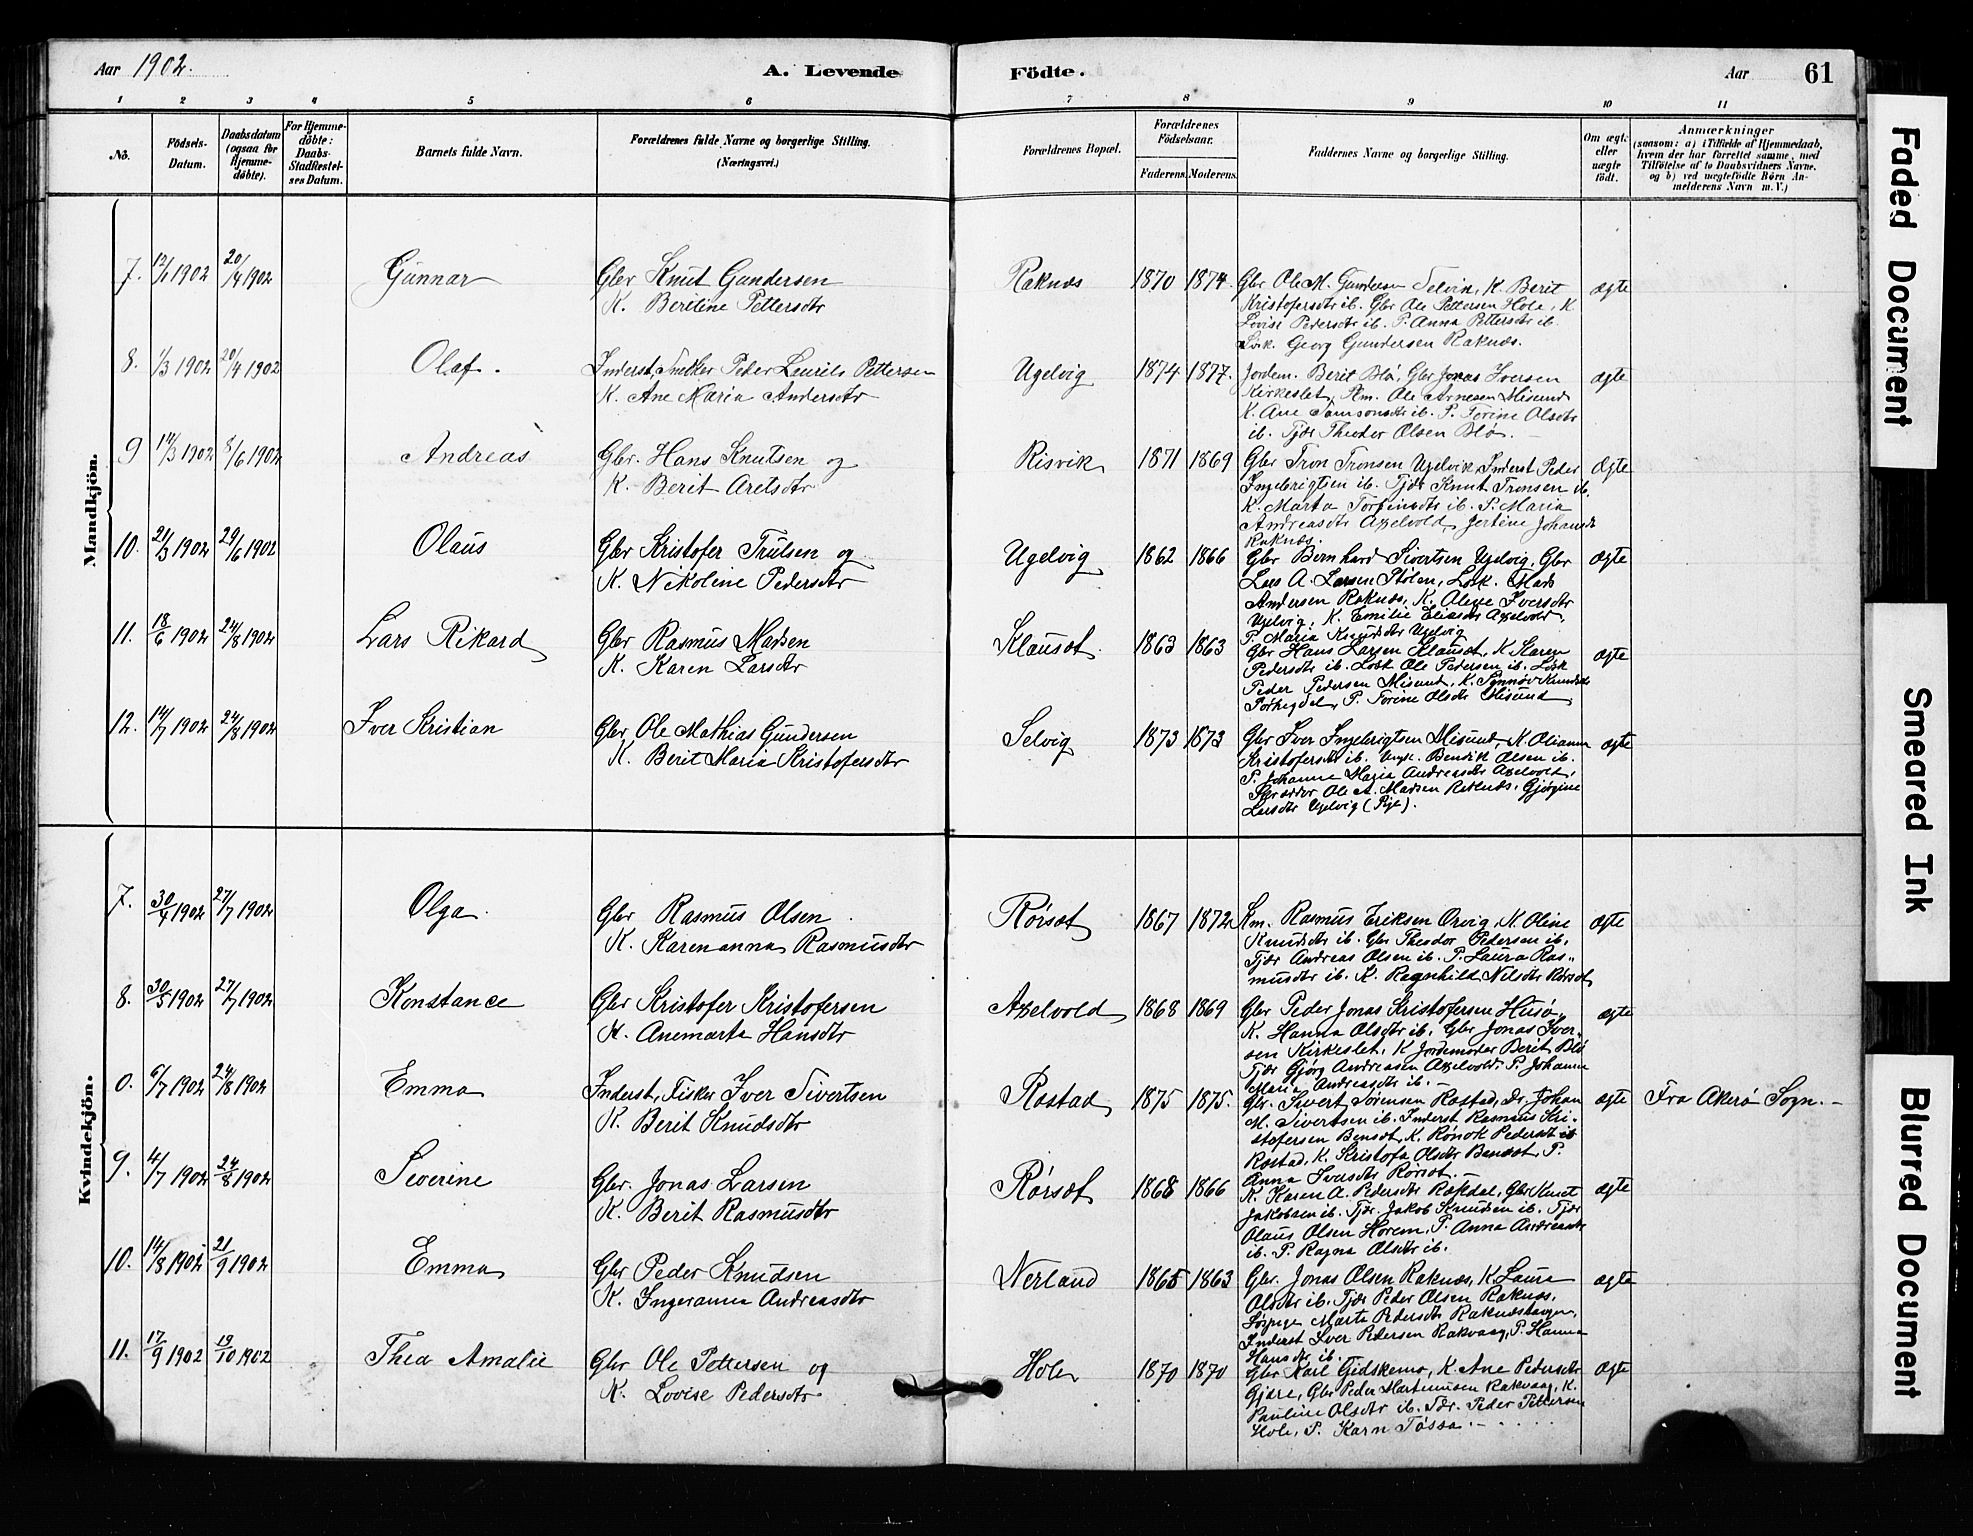 Aar 1902.
A. Levende
Födte.
Aar
61
1 2 3 4 5 6 7 8 9 10 11
No.
Födsels-
Datum.
Daabsdatum
(ogsaa for
Hjemme-
döbte).
For Hjemme-
döbte:
Daabs-
Stadfæstel-
ses Datum.
Barnets fulde Navn.
Forældrenes fulde Navne og borgerlige Stilling.
(Næringsvei.)
Forældrenes Bopæl.
Forældrenes
Födselsaar.
Faderens. Moderens.
Faddernes Navne og borgerlige Stilling.
Om ægte
eller
uægte
födt.
Anmærkninger
(saasom: a) i Tilfælde af Hjemmedaab,
hvem der har forrettet samme, med
Tilföielse af to Daabsvidners Navne,
og b) ved uægtefödte Börn An-
melderens Navn m. V.)
Mandkjön.
7. 12/1 1902 20/4 1902 Gunnar
Gbr Knut Gundersen
K. Beritine Pettersdtr
Raknæs 1870 1874
Gbr Ole M. Gundersen Selvik, K. Berit
Kristofersdtr ib. Gbr Ole Pettersen Hole, K
Lovise Pedersdtr ib. P. Anna Pettersdtr ib.
Georg Gundersen Raknæs.
ægte
8. 1/3 1902 20/4 1902 Olaf.
Inderst, Snekker Peder Laurits Pettersen
K. Ane Maria Andersdtr
Ugelvig 1874 1877.
Jordem. Berit Blø, Gbr Jonas Iversen
Kirkeslet, Km. Ole Arnesen Misund
K. Ane Samsonsdtr ib. P. Torine Olsdtr
ib. Tjdr Theodor Olsen Blø.
ægte
9 14/3 1902 8/6 1902 Andreas
Gbr. Hans Knutsen og
K. Berit Aretsdtr
Risvik 1871 1869
Gbr Tron Tronsen Ugelvik, Inderst Peder
Ingebrigtsen ib. Tjdr Knut Tronsen ib.
K. Marta Torfinsdtr ib. P. Maria
Andreasdtr Axelvold, Jertine Johansdr
Raknæs.
Ægte
10. 21/3 1902 29/6 1902 Olaus
Gbr Kristofer Trulsen og
K. Nikoline Pedersdtr
Ugelvig 1862 1866
Gbr Bernhard Sivertsen Ugelvig, Gbr
Lars A. Larsen Stølen, Mads
Andersen Raknæs, K. Oline Iversdtr
Ugelvig, K. Emilie Eliasdtr Axelvold,
P. Maria Knudsdtr Ugelvig
Ægte
11. 18/6 1902 24/8 1902 Lars Rikard
Gbr Rasmus Madsen
K. Karen Larsdtr
Klauset 1863 1863
Gbr Hans Larsen Klauset, K. Karen
Pedersdtr ib. Ole Pedersen ib.
Peder Pedersen Misund, K. Synnøv Knudsdtr
P. Torine Olsdtr Misund
ægte
12. 14/7 1902 24/8 1902 Iver Kristian
Gbr Ole Mathias Gundersen
K. Berit Maria Kristofersdtr
Selvig 1873 1873
Gbr Iver Ingebrigtsen Misund, K. Olianna
Kristofersdtr ib. Ungk. Bensik Olsen ib.
P. Johanne Maria Andreasdtr Axelvold,
Skrædder Ole A. Madsen Raknæs, Gjørgine
Larsdtr Ugelvig (Pige).
ægte
Kvindekjön.
7. 30/4 1902 27/7 1902 Olga
Gbr Rasmus Olsen
K. Karenanna Rasmusdtr
Rørset 1867 1872
Km. Rasmus Eriksen Orvig, K. Oline
Knudsdtr ib. Gbr Theodor Pedersen ib.
Tjdr Andreas Olsen ib. P. Laura Ras-
musdtr ib. K. Ragnhild Nilsdtr Rørset
ægte
8. 30/5 1902 27/7 1902 Konstance
Gbr Kristofer Kristofersen
K. Anemarta Hansdtr
Axelvold 1868 1869
Gbr Peder Jonas Kristofersen Husø,
K. Hanna Olsdtr ib. Gbr Jonas Iver-
sen Kirkeslet, K Jordemoder Berit Blø
Tjdr Gjørg Andreasen Axelvold. P. Johanne
Maria Andreasdtr ib.
ægte
0. 6/7 1902 24/8 1902 Emma
Inderst, Fisker Iver Sivertsen
K. Berit Knudsdtr
Røstad 1875 1875.
Gbr. Sivert Sørensen Røstad, Dr. Johan
M. Sivertsen ib. Inderst Rasmus Kri-
stofersen Benset, K. Rønok Pedersdt ib
Røstad, K. Kristofa Olsdtr Benset, P.
Anna Iversdtr Rørset.
ægte
Fra Akerø Sogn.
9. 4/7 1902 24/8 1902 Severine
Gbr. Jonas Larsen
K. Berit Rasmusdtr
Rørset 1868 1866
K. Karen A. Pedersdtr Røsdal, Gbr Knut
Jakobsen ib. Tjdr. Jakob Knudsen ib. Tjdr
Olaus Olsen Horem, P. Anna Andreasdtr
ib. P. Ragna Olsdtr ib.
ægte
10. 14/8 1902 21/9 1902 Emma
Gbr Peder Knudsen
K. Ingeranna Andreasdtr
Nerland 1865 1863
Gbr. Jonas Olsen Raknæs, K. Laura
Olsdtr ib. Tjdr Peder Olsen Raknæs,
Marta Pedersdtr Raknæshaugen,
Inderst Iver Pedersen Rakvaag, P. Hanna
Hansdtr ib.
ægte
11. 17/9 1902 19/10 1902 Thea Amalie
Gbr Ole Pettersen og
K. Lovise Pedersdtr
Hole 1870 1870
Gbr Karl Gidskemo, K Ane Pedersdtr
Gjøre, Gbr Peder Martinusen Rakvaag, K.
Pauline Olsdtr ib. Tdr. Peder Pettersen
Hole, P. Karn Tøssa.
Ægte
Faded Document
Smeared Ink
Blurred Document